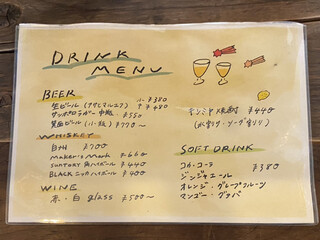 DRINK
MENU
BEER
生ビール (アサヒマルエフ) 小 ¥380
中 ¥480
サッポロラガー 中瓶 ¥550
黄金ビール (小瓶) ¥770〜
WHISKEY
白州 ¥700
Maker's Mark ¥660
SUNTORY 角ハイボール ¥440
BLACKニッカハイボール ¥400
WINE
赤・白 glass ¥500〜
キンミヤ焼酎 ¥440
(水割り・ソーダ割り)
SOFT DRINK
コカ・コーラ ¥380
ジンジャエール
オレンジ・グレープフルーツ
マンゴー・グァバ